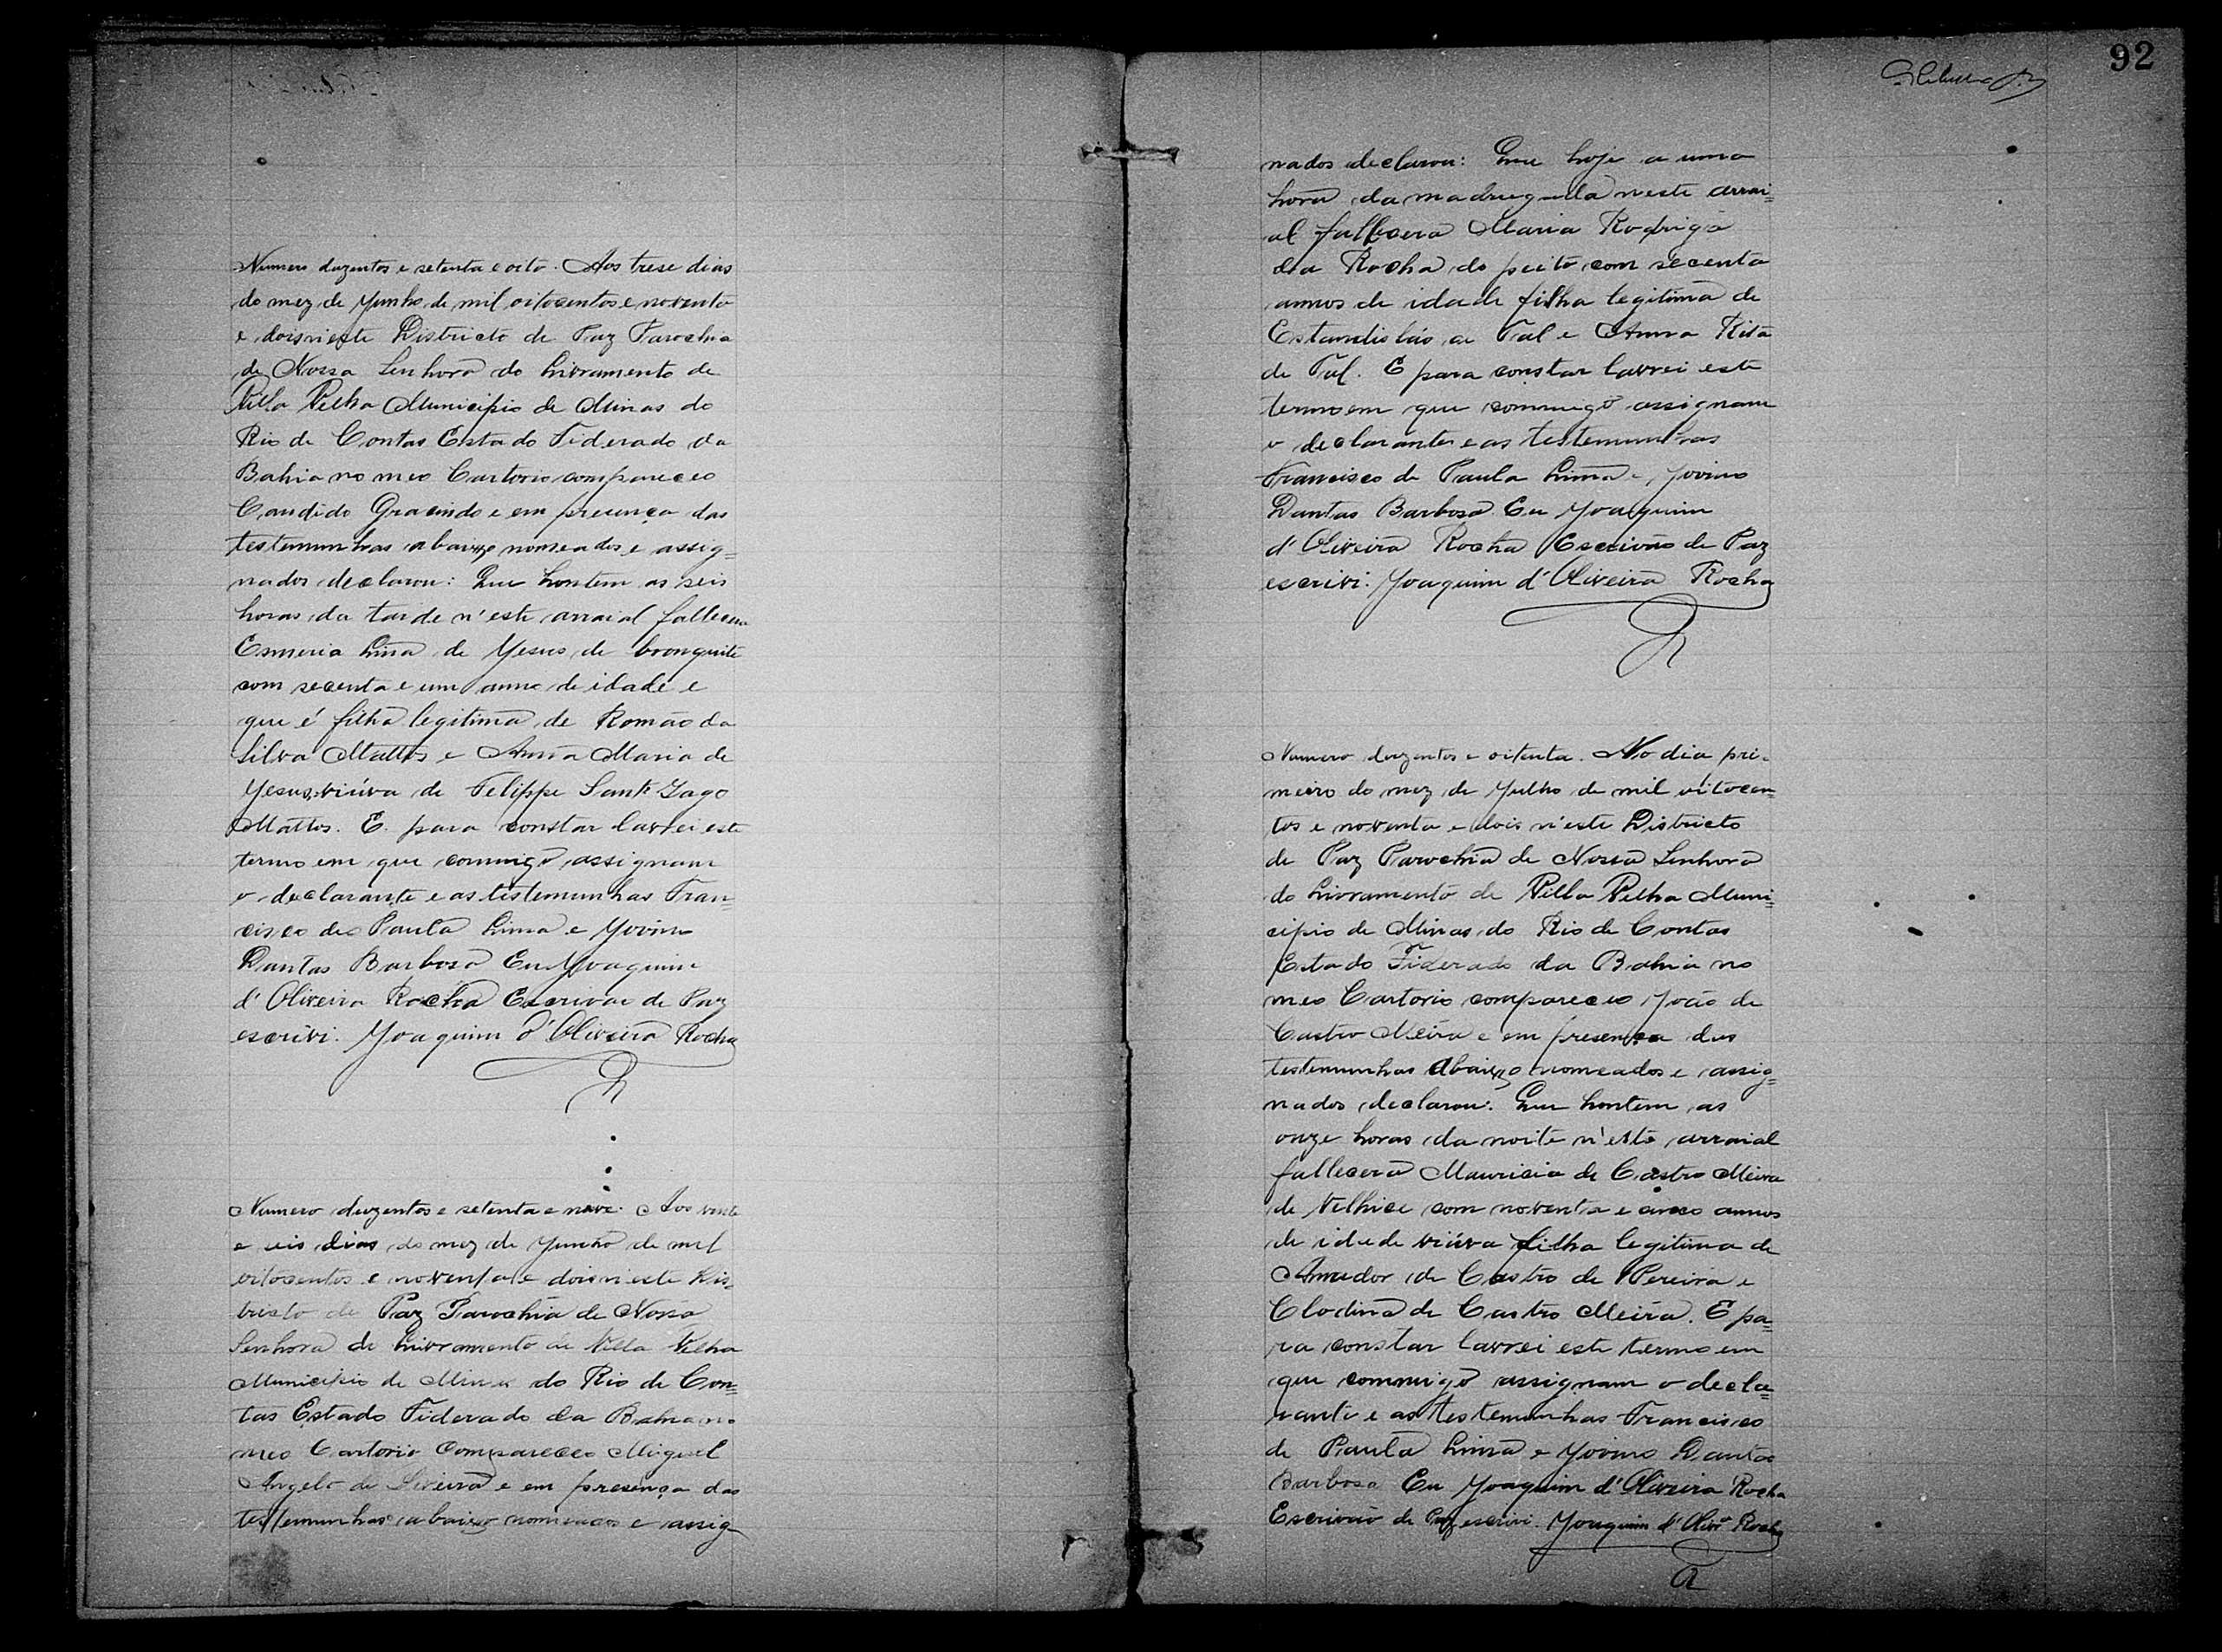 Numero duzentos e setenta e oito. Aos trese dias
do mez de Junho de mil oitocentos e noventa
e dois n'este Districto de Paz Parochia
de Nossa Senhora do Livramento de
Villa Velha Municipio de Minas do
Rio de Contas Estado Federado da
Bahia no meo Cartorio compareceo
Candido Gracindo e em presença das
testemunhas abaixo nomeados e assig=
nados declarou: Que hontem as seis
horas da tarde n'este arraial fallecera
Esmeria Lina de Jesus de bronquite
com secenta e um anno de idade e
que é filha legitima de Romão da
Silva Mattos e Anna Maria de
Jesus, viúva de Felippe Santi Iago
Mattos. E para constar lavrei este
termo em que commigo assignam
o declarante e as testemunhas Fran=
cisco de Paula Lima e Jovino
Dantas Barbosa Eu Joaquim
d'Oliveira Rocha Escrivão de Paz
escrivi. Joaquim d'Oliveira Rocha
Numero duzentos e setenta e nove. Aos vinte
e seis dias do mez de Junho de mil
oitocentos e noventa e dois n'este Dis
tricto de Paz Parochia de Nossa
Senhora do Livramento de Villa Velha
Municipio de Minas do Rio de Con=
tas Estado Federado da Bahia no
meo Cartorio compareceo Miguel
Angelo de e em presença das
testemunhas abaixo nomeados e assig
92
nados declarou: Que hoje a uma
hora da madrugada neste arrai=
al fallecera Maria Rodriga
da Rocha do peito com secenta
annos de idade filha legitima de
Estandisláo de Tal e Anna Rita
de Tal. E para constar lavrei este
termo em que commigo assignam
o declarante e as testemunhas
Francisco de Paula Lima e Jovino
Dantas Barbosa Eu Joaquim
d'Oliveira Rocha Escrivão de Paz
escrivi. Joaquim d'Oliveira Rocha
Numero duzentos e oitenta. No dia pri-
meiro do mez de Julho de mil oitocen=
tos e noventa e dois n'este Districto
de Paz Parochia de Nossa Senhora
do Livramento de Villa Velha Muni=
cipio de Minas do Rio de Contas
Estado Federado da Bahia no
meo Cartorio compareceo João de
Castro Meira e em presença das
testemunhas abaixo nomeados e assig=
nados declarou: Que hontem as
onze horas da noite n'este arraial
fallecera Mauricia de Castro Meira
de Velhice com noventa e cinco annos
de idade viúva filha legitima de
Amador de Castro de Pereira e
Clodina de Castro Meira. E pa=
ra constar lavrei este termo em
que commigo assignam o decla=
rante e as testemunhas Francisco
de Paula Lima e Jovino Dantas
Barbosa Eu Joaquim d'Oliveira Rocha
Escrivão de Paz escrivi. Joaquim d'Olivrª Rocha